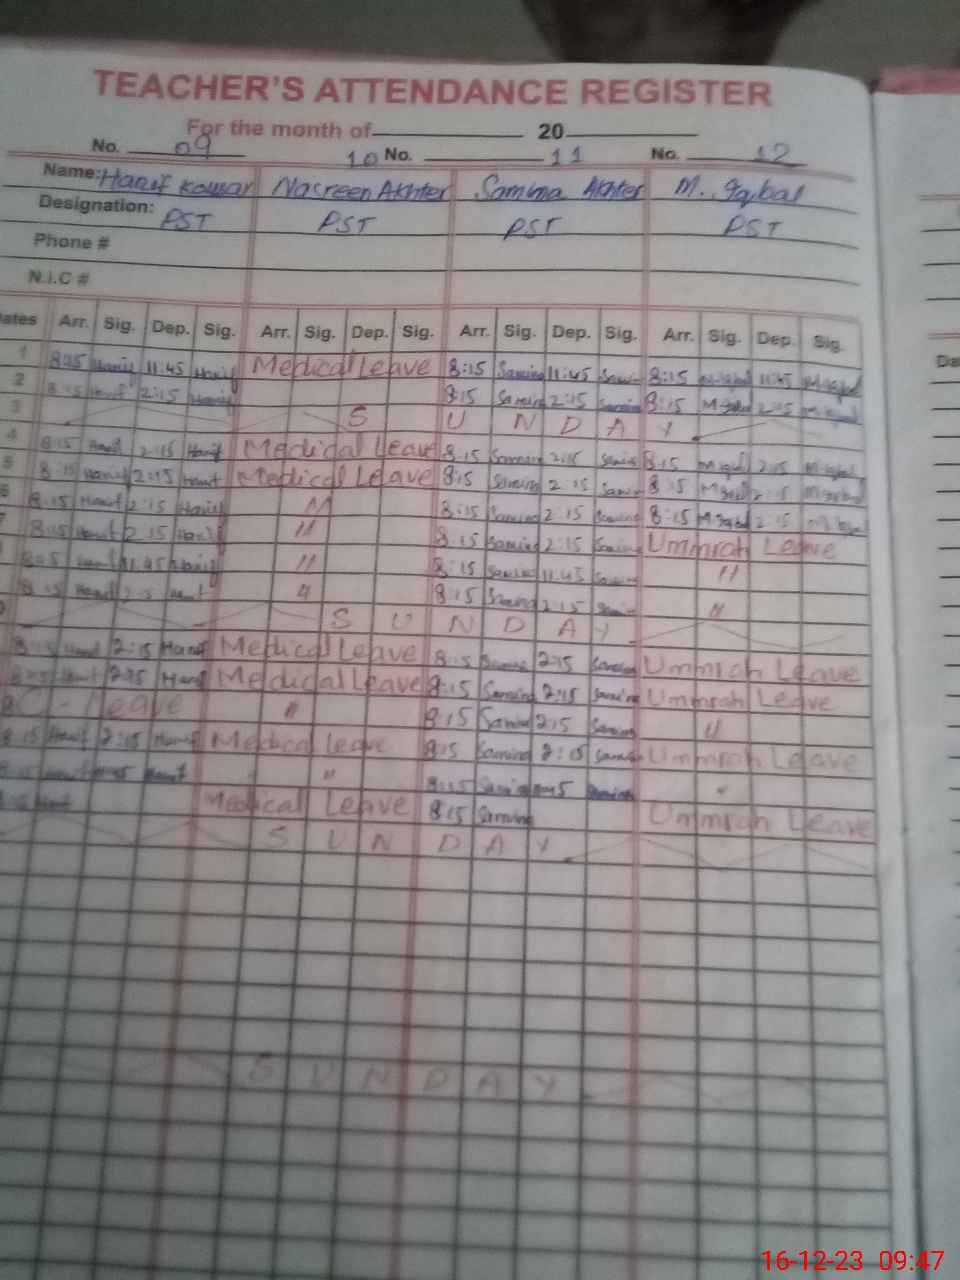 TEACHER'S ATTENDANCE REGISTER
For the month of 20
No. 09 10 No. 11 No. 12
Name: Hanif Kousar Nasreen Akhter Samina Akhter M. Iqbal
Designation: PST PST PST PST
Phone #
N.I.C #
Dates Arr. Sig. Dep. Sig. Arr. Sig. Dep. Sig. Arr. Sig. Dep. Sig. Arr. Sig. Dep. Sig.
1 8:15 Hanif 11:45 Hanif Medical Leave 8:15 Samina 11:45 Samina 8:15 M. Iqbal 11:45 M. Iqbal
2 8:15 Hanif 2:15 Hanif 8:15 Samina 2:15 Samina 8:15 M. Iqbal 2:15 M. Iqbal
3 S U N D A Y
4 8:15 Hanif 2:15 Hanif Medical Leave 8:15 Samina 2:15 Samina 8:15 M. Iqbal 2:15 M. Iqbal
5 8:15 Hanif 2:15 Hanif Medical Leave 8:15 Samina 2:15 Samina 8:15 M. Iqbal 2:15 M. Iqbal
8:15 Hanif 2:15 Hanif " 8:15 Samina 2:15 Samina 8:15 M. Iqbal 2:15 M. Iqbal
8:15 Hanif 2:15 Hanif " 8:15 Samina 2:15 Samina Ummrah Leave
Hanif 11:45 Hanif " 8:15 Samina 11:45 Samina "
8:15 Hanif " 8:15 Samina 2:15 Samina "
S U N D A Y
8:15 Hanif 2:15 Hanif Medical Leave 8:15 Samina 2:15 Samina Ummrah Leave
Hanif 2:15 Hanif Medical Leave 8:15 Samina 2:15 Samina Ummrah Leave
C - leave " 8:15 Samina 2:15 Samina "
8:15 Hanif 2:15 Hanif Medical leave 8:15 Samina 2:15 Samina Ummrah Leave
Hanif " 8:15 Samina Samina "
Medical Leave 8:15 Samina Ummrah Leave
S U N D A Y
S U N D A Y
16-12-23 09:47